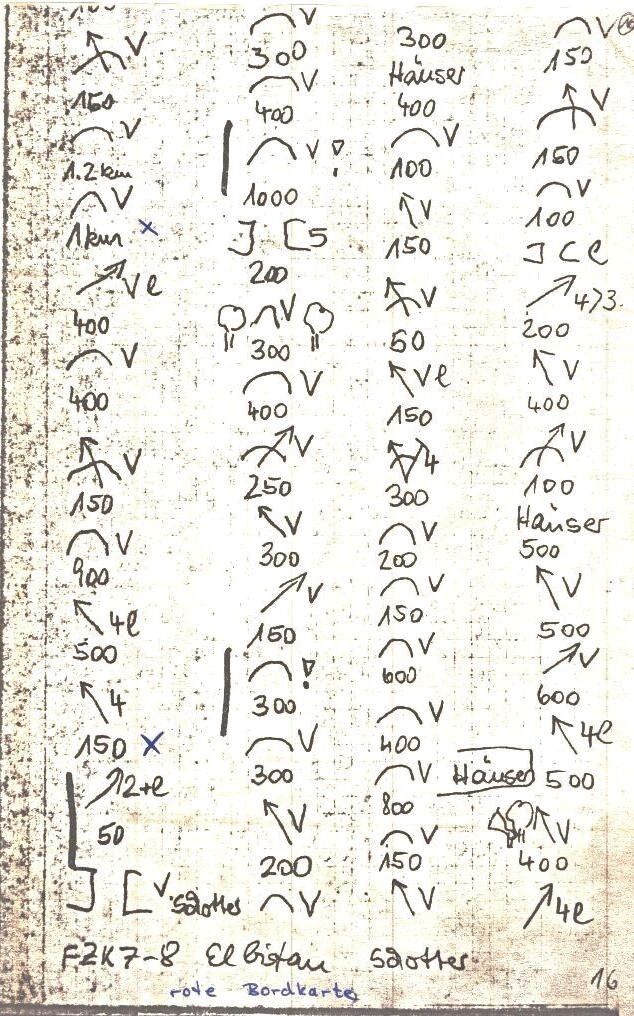 V
150
V
1.2 km
V
1 km x
V e
400
V
400
V
150
V
900
4e
500
4
150 x
2+e
50
V. Schotter
V
300
V
400
V !
1000
5
200
V
300
V
400
V
250
V
300
V
150
!
300
V
300
V
200
V
300
Häuser
400
V
100
V
150
V
50
V e
150
4
300
V
200
V
150
V
600
V
400
V
800
V
150
V
V
150
V
150
V
100
e
4>3
200
V
400
V
100
Häuser
500
V
500
V
600
4e
Häuser 500
V
400
4e
FZK7-8 Elbistan Schotter
rote Bordkarte
16